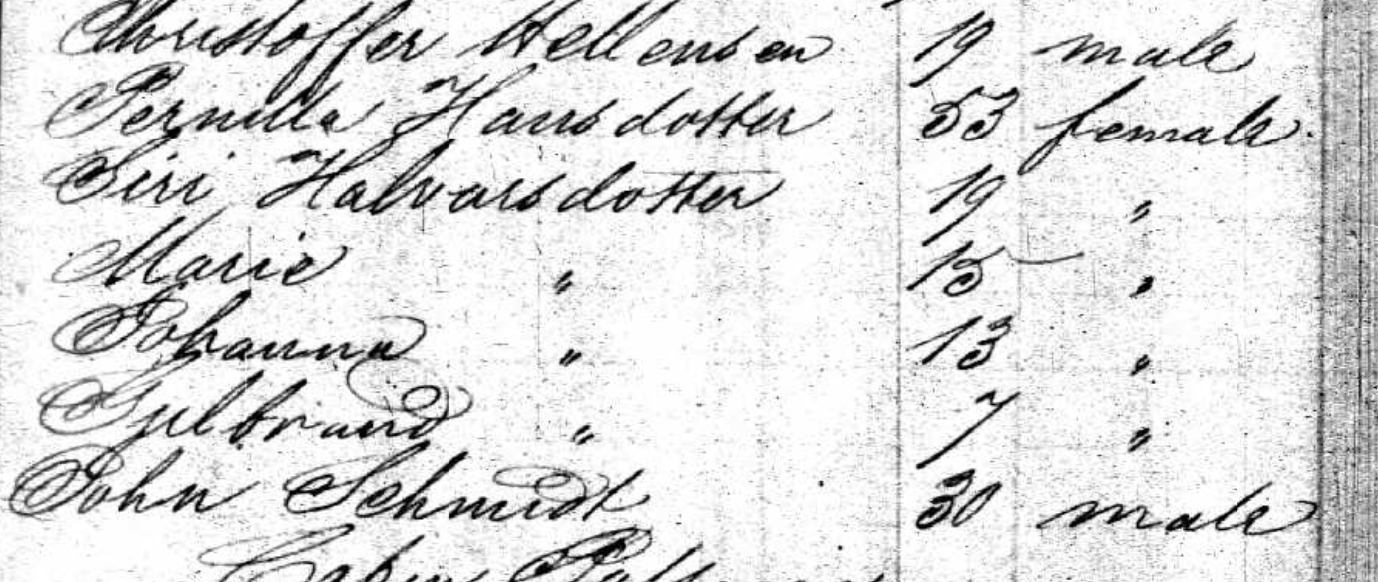 Christoffer Hellensen 19 male
Pernilla Hansdotter 53 female
Siri Halvarsdotter 19 "
Marie " 15 "
Johanna " 13 "
Gulbrand " 7 "
John Schmidt 30 male